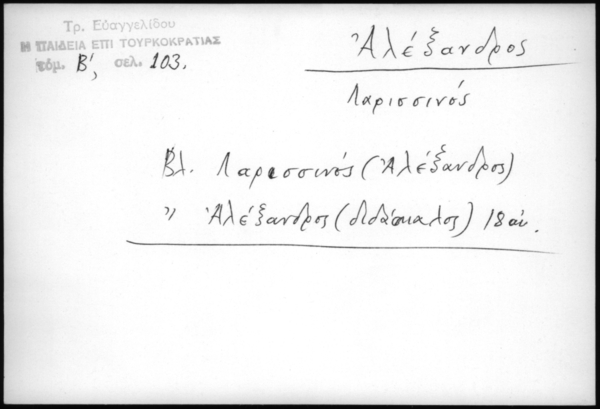 Τρ. Εὐαγγελίδου
Η ΠΑΙΔΕΙΑ ΕΠΙ ΤΟΥΡΚΟΚΡΑΤΙΑΣ
τόμ. Β', σελ. 103.
Ἀλέξανδρος
Λαρισσινός
Βλ. Λαρισσινός (Ἀλέξανδρος)
" Ἀλέξανδρος (διδάσκαλος) 18 αἰ.